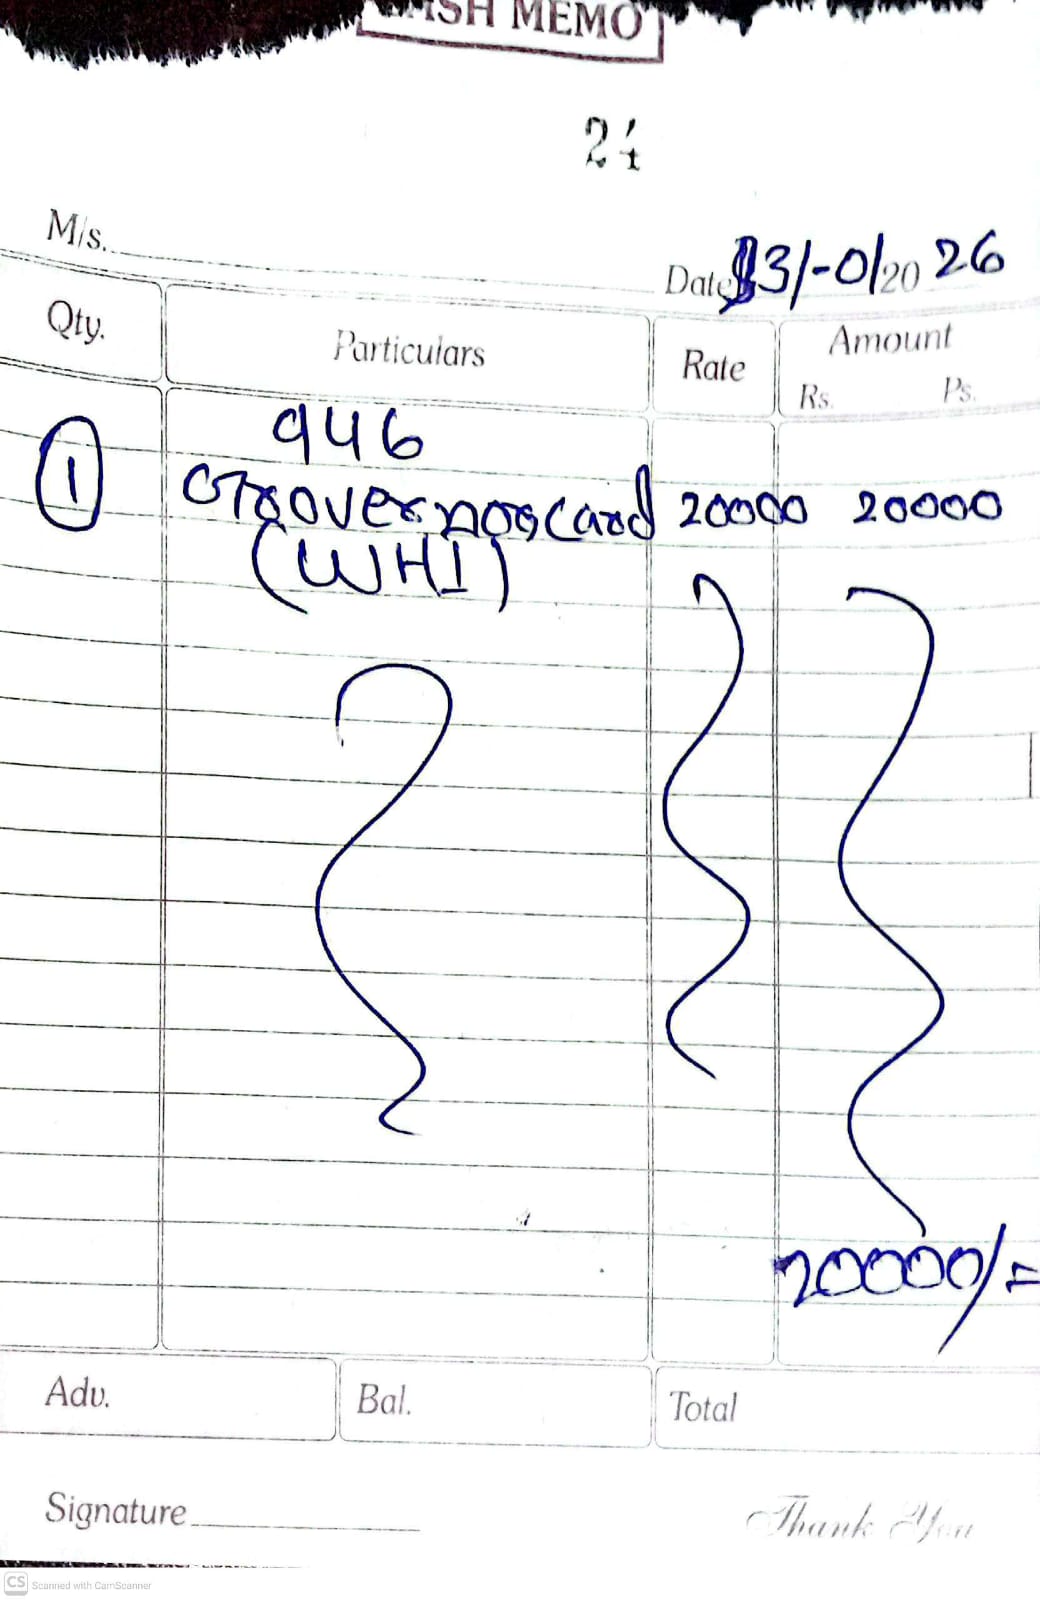 CASH MEMO
24
M/s.
Date 31-01 20 26
Qty. Particulars Rate Amount
Rs. Ps.
946
1 Governor Card 20000 20000
(WHI)
20000/=
Adv. Bal. Total
Signature
Thank You
CS Scanned with CamScanner